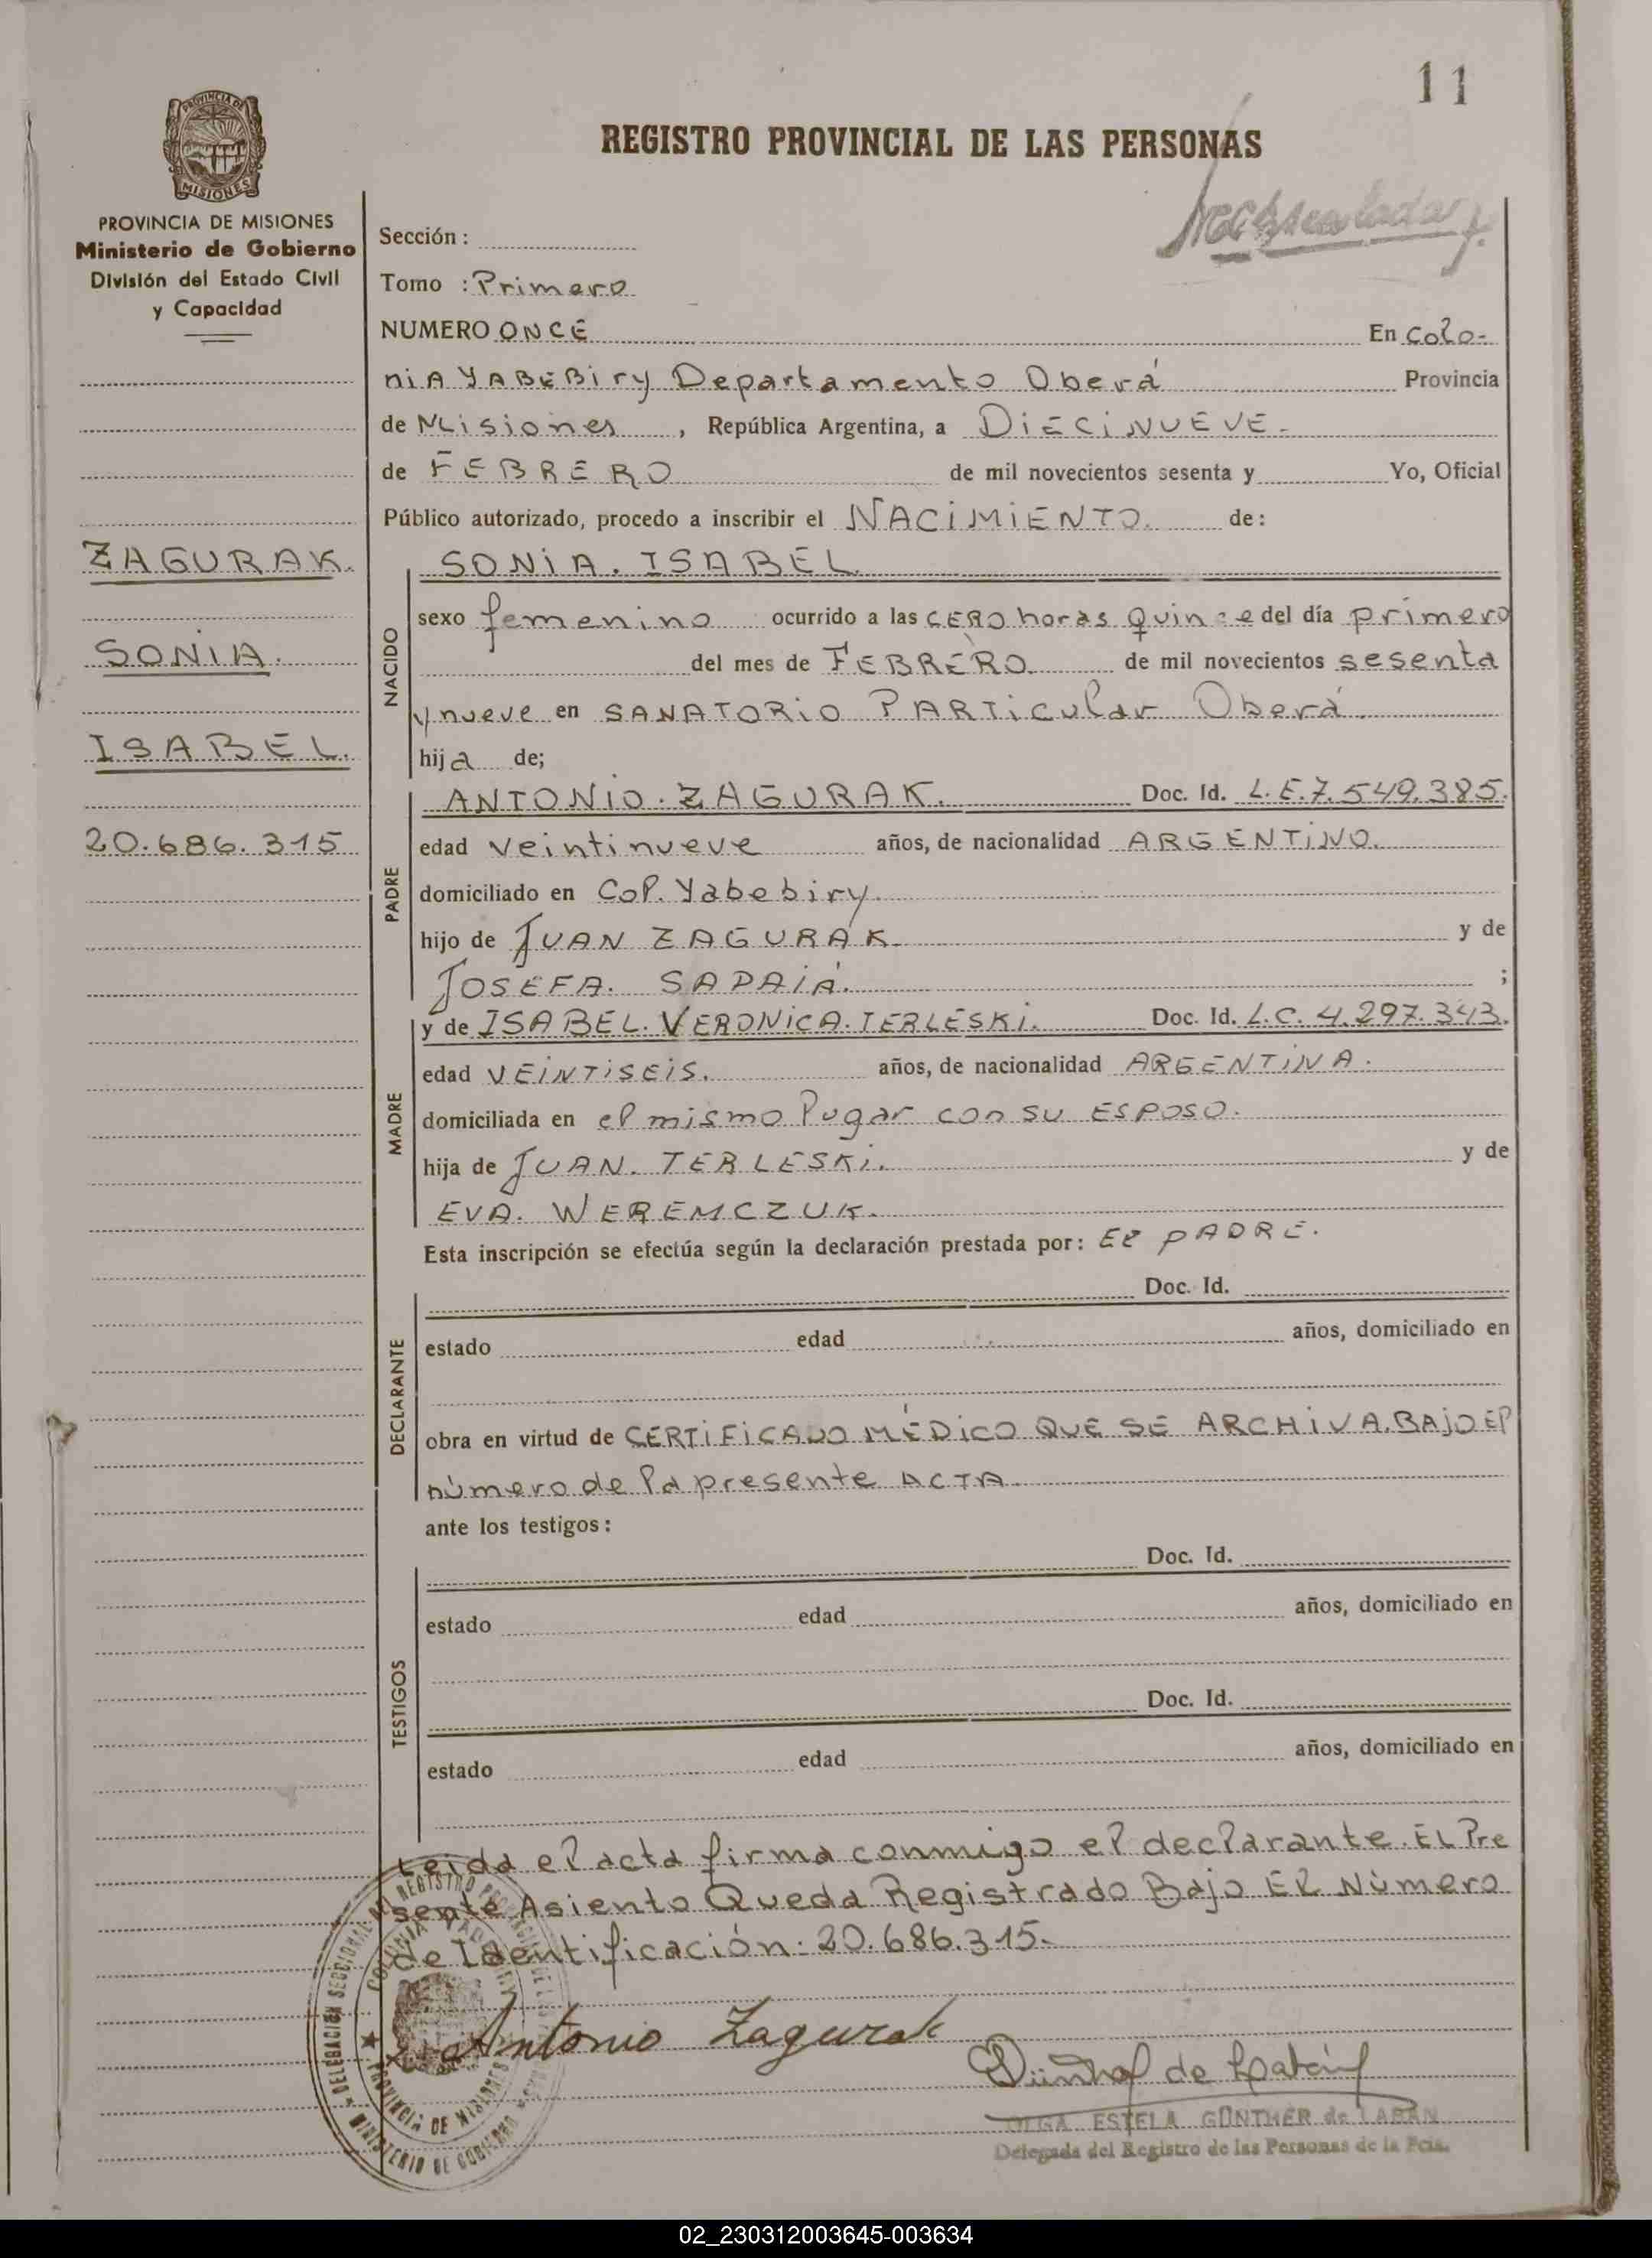 11
REGISTRO PROVINCIAL DE LAS PERSONAS
MISIONES
PROVINCIA DE MISIONES
Ministerio de Gobierno
División del Estado Civil
y Capacidad
Sección :
Tomo : Primero
NUMERO ONCE En Colo-
niA YABEBiry Departamento Oberá Provincia
de Misiones , República Argentina, a DiECiNUEVE.
de FEBRERO de mil novecientos sesenta y Yo, Oficial
Público autorizado, procedo a inscribir el NACiMiENTO. de:
ZAGURAK.
SONIA.
ISABEL.
20.686.315
NACIDO
SONiA. ISABEL.
sexo femenino ocurrido a las CERO horas Quince del día primero
del mes de FEBRERO de mil novecientos sesenta
y nueve en SANATORiO PARTicular Oberá.
hija de;
PADRE
ANTONiO. ZAGURAK. Doc. Id. L.E.7.549.385.
edad veintinueve años, de nacionalidad ARGENTiNO.
domiciliado en Col. Yabebiry.
hijo de JUAN ZAGURAK. y de
JOSEFA. SAPAiA. ;
MADRE
y de ISABEL. VERONiCA. TERLESKi. Doc. Id. L.C. 4.297.343.
edad VEiNTiSEiS. años, de nacionalidad ARGENTiNA.
domiciliada en el mismo lugar con su ESPOSO.
hija de JUAN. TERLESKi. y de
EVA. WEREMCZUK.
Esta inscripción se efectúa según la declaración prestada por: El PADRE.
DECLARANTE
Doc. Id.
estado edad años, domiciliado en
obra en virtud de CERTiFiCADO MÉDiCO QUE SE ARCHiVA. BAjO El
número de la presente ACTA.
ante los testigos:
TESTIGOS
Doc. Id.
estado edad años, domiciliado en
Doc. Id.
estado edad años, domiciliado en
Leida el acta firma conmigo el declarante. EL Pre
sente Asiento Queda Registrado Bajo El Número
de Identificación: 20.686.315.
Antonio Zagurak
OLGA ESTELA GÜNTHER de LABAN
Delegada del Registro de las Personas de la Pcia.
DELEGACIÓN SECCIONAL REGISTRO PROVINCIAL DE LAS
MINISTERIO DE GOBIERNO
COLONIA
PROVINCIA DE MISIONES
02_230312003645-003634